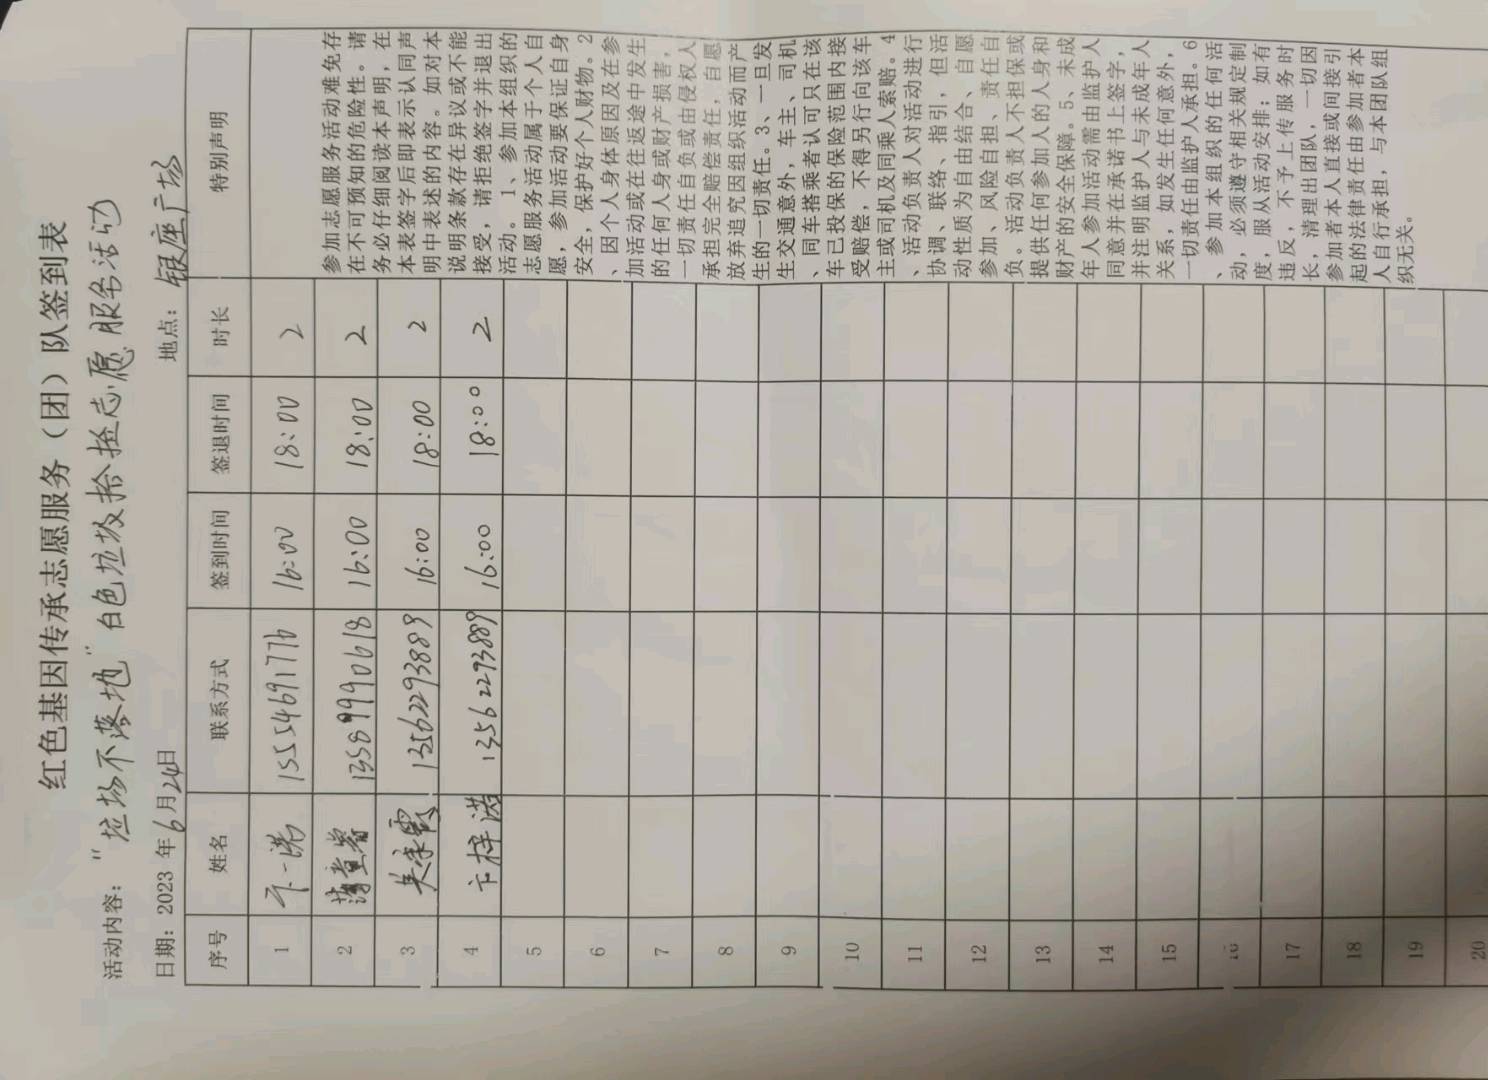 红色基因传承志愿服务（团）队签到表
活动内容：“垃圾不落地”白色垃圾捡拾志愿服务活动
日期：2023年6月24日 地点：银座广场
序号 姓名 联系方式 签到时间 签退时间 时长 特别声明
1 15554691776 16:00 18:00 2
2 13589990618 16:00 18:00 2
3 13562293889 16:00 18:00 2
4 卞梓洪 13562293889 16:00 18:00 2
5
6
7
8
9
10
11
12
13
14
15
16
17
18
19
20
参加志愿服务活动难免存
在不可预知的危险性。请
务必仔细阅读本声明，在
本表签字后即表示认同声
明中表述的内容。如对本
说明条款存在异议或不能
接受，请拒绝签字并退出
活动。1、参加本组织的
志愿服务活动属于个人自
愿，参加活动要保证自身
安全，保护好个人财物。2
、因个人身体原因及在参
加活动或在往返途中发生
的任何人身或财产损害，
一切责任自负或由侵权人
承担完全赔偿责任，自愿
放弃追究因组织活动而产
生的一切责任。3、一旦发
生交通意外，车主、司机
、同车搭乘者认可只在该
车已投保的保险范围内接
受赔偿，不得另行向该车
主或司机及同乘人索赔。4
、活动负责人对活动进行
协调、联络、指引，但活
动性质为自由结合、自愿
参加、风险自担、责任自
负。活动负责人不担保或
提供任何参加人的人身和
财产的安全保障。5、未成
年人参加活动需由监护人
同意并在承诺书上签字，
并注明监护人与未成年人
关系，如发生任何意外，
一切责任由监护人承担。6
、参加本组织的任何活
动，必须遵守相关规定制
度，服从活动安排；如有
违反，不予上传服务时
长，清理出团队，一切因
参加者本人直接或间接引
起的法律责任由参加者本
人自行承担，与本团队组
织无关。